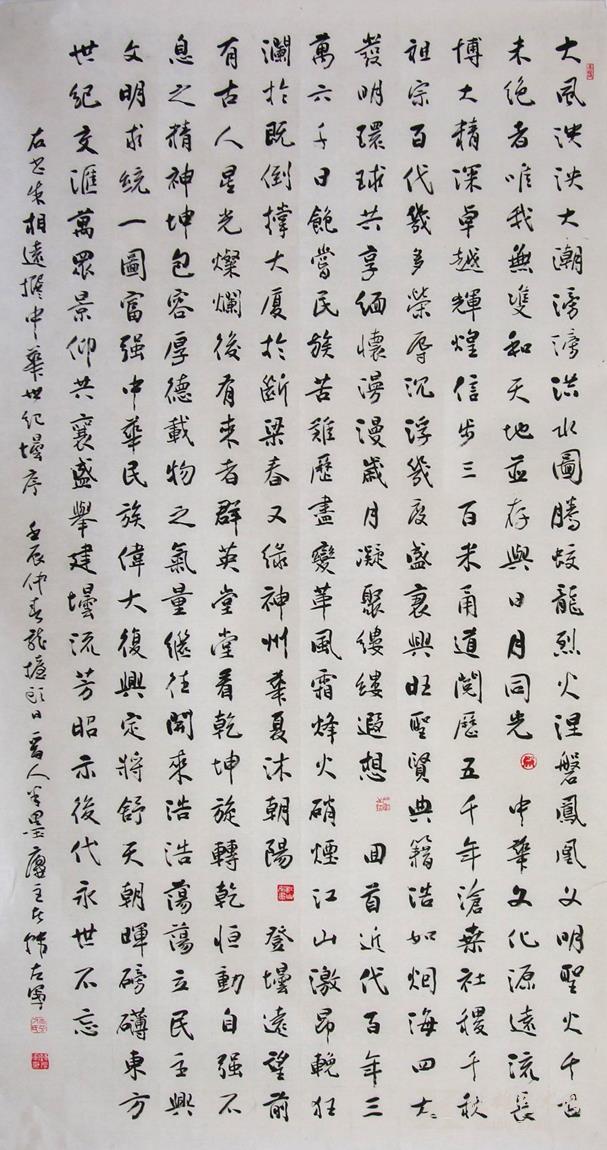 大風泱泱大潮滂滂洪水圖騰蛟龍烈火涅磐鳳凰文明聖火千古
未絕者唯我無雙和天地並存與日月同光 中華文化源遠流長
博大精深卓越輝煌信步三百米甬道閱歷五千年滄桑社稷千秋
祖宗百代幾多榮辱沉浮幾度盛衰興旺聖賢典籍浩如烟海四大
發明環球共享緬懷漫漫歲月凝聚縷縷遐想 回首近代百年三
萬六千日飽嘗民族苦難歷盡變革風霜烽火硝煙江山激昂輓狂
瀾於既倒撐大廈於斷梁春又綠神州華夏沐朝陽 登壇遠望前
有古人星光燦爛後有來者群英堂堂看乾坤旋轉乾恒動自强不
息之精神坤包容厚德載物之氣量繼往開來浩浩蕩蕩立民主興
文明求統一圖富强中華民族偉大復興定將舒天朝暉磅礴東方
世紀交滙萬眾景仰共襄盛舉建壇流芳昭示後代永世不忘
右書朱相遠撰中華世紀壇序 壬辰仲春龍擡頭日晉人半墨廬主